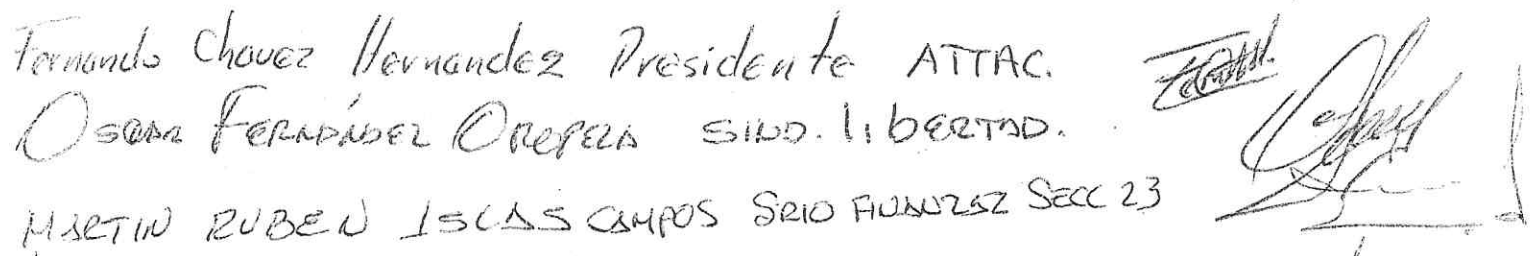 Fernando Chavez Hernandez Presidente ATTAC.
OSCAR FERNÁNDEZ OROPEZA SIND. LIBERTAD.
MARTIN RUBEN ISLAS CAMPOS SRIO FINANZAZ SECC 23